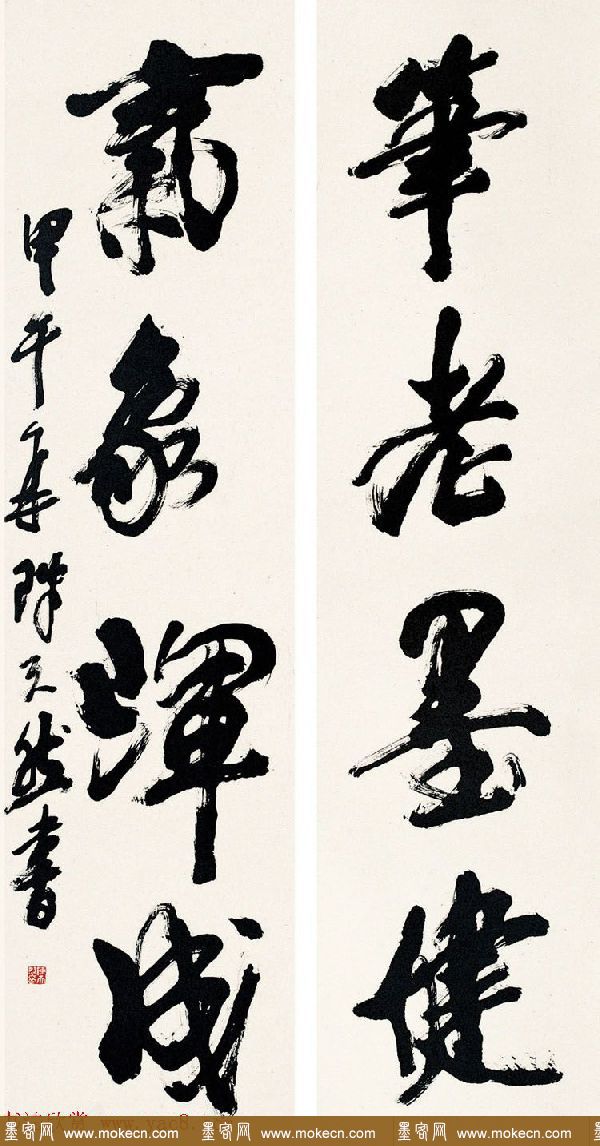 筆老墨健
氣象渾成
甲午年陳天然書
www.yac8.
墨客网 www.mokecn.com 墨客网 www.mokecn.com 墨客网 www.mokecn.com